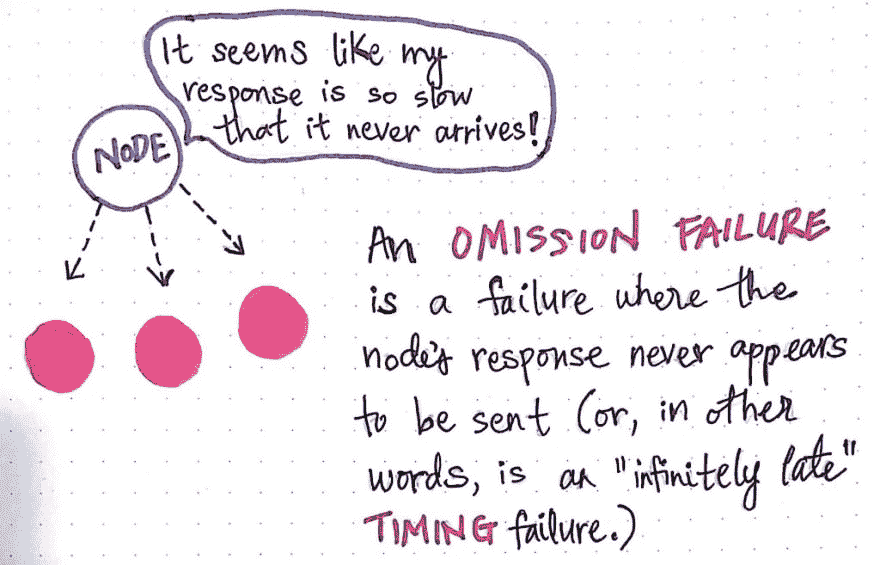 It seems like my
response is so slow
that it never arrives!
NODE
An OMISSION FAILURE
is a failure where the
node's response never appears
to be sent (or, in other
words, is an "infinitely late"
TIMING failure.)